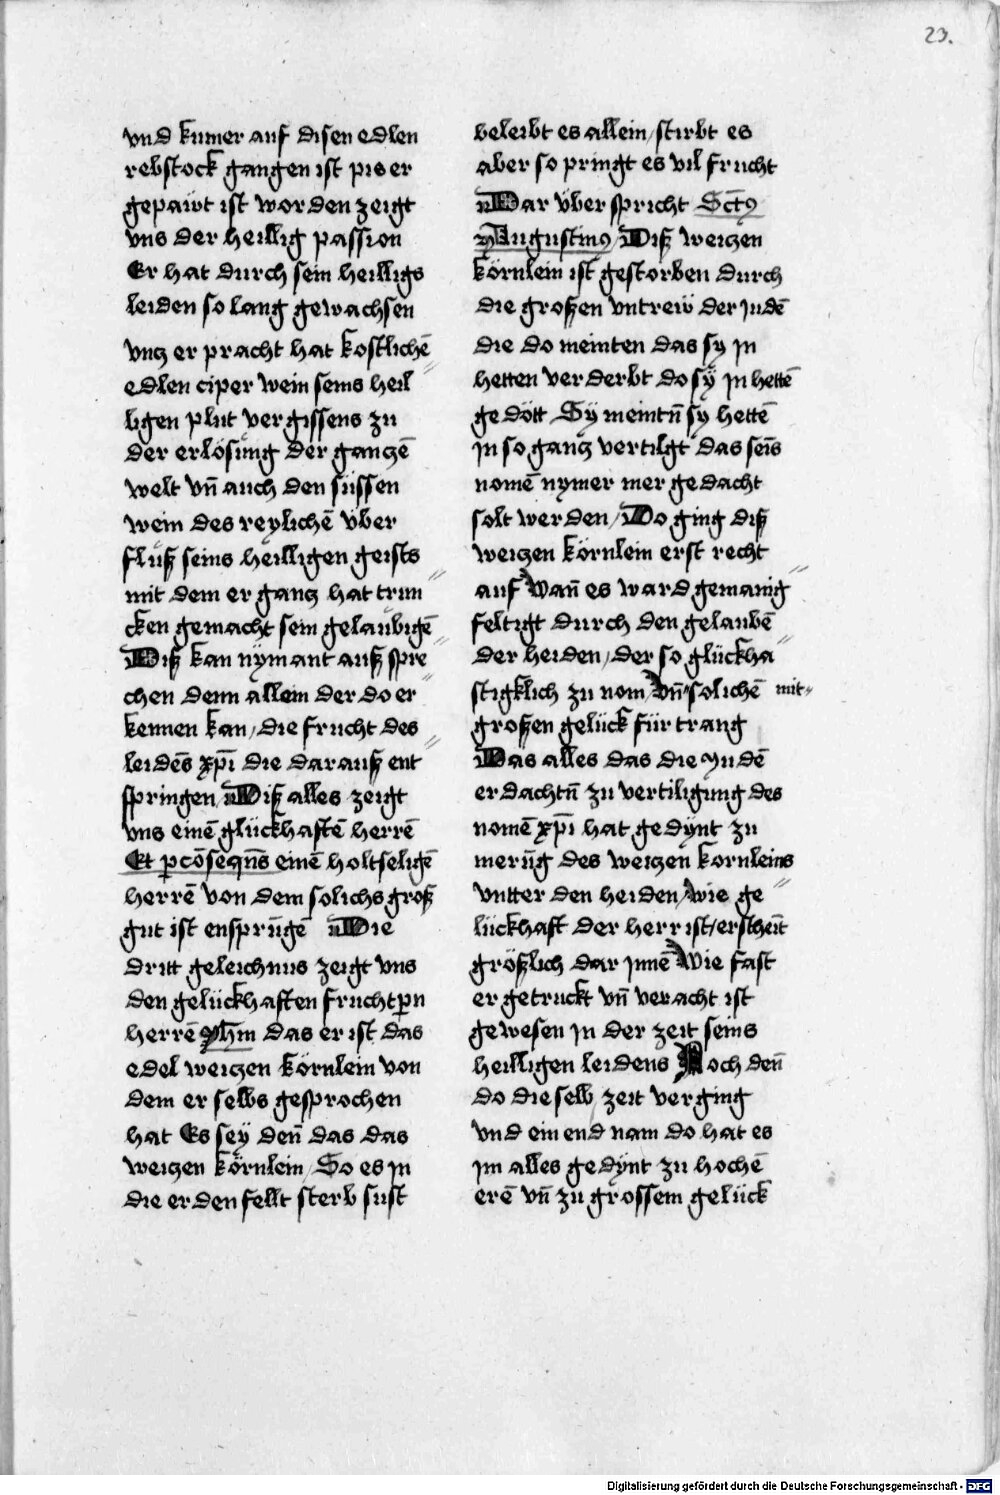 23.
vnd kumer auf disen edlen
rebstock gangen ist pis er
gepawt ist worden zeigt
vns der heillig passion
Er hat durch sein heilligs
leiden so lang gewachsen
vntz er pracht hat kostlichē
edlen ciper wein seins heil
ligen plut vergissens zu
der erlösung der gantzē
welt vn̄ auch den süssen
wein des reylichē über
fluß seins heilligen geists
mit dem er gantz hat trun
cken gemacht sein gelaubigē
Diß kan nymant auß spre
chen denn allein der do er
kennen kan / die frucht des
leidēs xp̄i die darauß ent
springen / Diß alles zeigt
vns einē glückhaftē herrē
Et ꝑ cōseqn̄s einē holtseligē
herrē von dem solichs groß
gut ist ensprūgē Die
dritt geleichnus zeigt vns
den gelückhaften fruchtpn
herrē yhm das er ist das
edel weitzen körnlein von
dem er selbs gesprochen
hat Es sey den̄ das das
weitzen körnlein / So es in
die erden fellt sterb sust
beleibt es allein / stirbt es
aber so pringt es vil frucht
Dar über spricht Sct̄ꝯ
Augustinꝯ / Diß weitzen
körnlein ist gestorben durch
die großen vntrew der judē
die do meinten das sy jn
hetten verderbt do sÿ jn hettē
gedött Sÿ meintn̄ sy hettē
jn so gantz vertilgt das seīs
nomē nymer mer gedacht
solt werden / Do ging diß
weitzen körnlein erst recht
auf Wan̄ es ward gemanig
feltigt durch den gelaubē
der heiden / der so glückha
stigklich zu nom / vn̄ solichē mit
großen gelück für trang
Das alles das die yudē
erdachtn̄ zu vertiligung des
nomē xp̄i hat gedÿnt zu
merūg des weitzen kornleins
vntter den heiden / wie ge
lückhaft der herr ist / erstheīt
größlich dar jnnē Wie fast
er getruckt vn̄ veracht ist
gewesen jn der zeit seins
heilligen leidens Noch den̄
do die selb zeit verging
vnd ein end nam do hat es
jm alles gedÿnt zu hochē
erē vn̄ zu grossem gelück
Digitalisierung gefördert durch die Deutsche Forschungsgemeinschaft - DFG